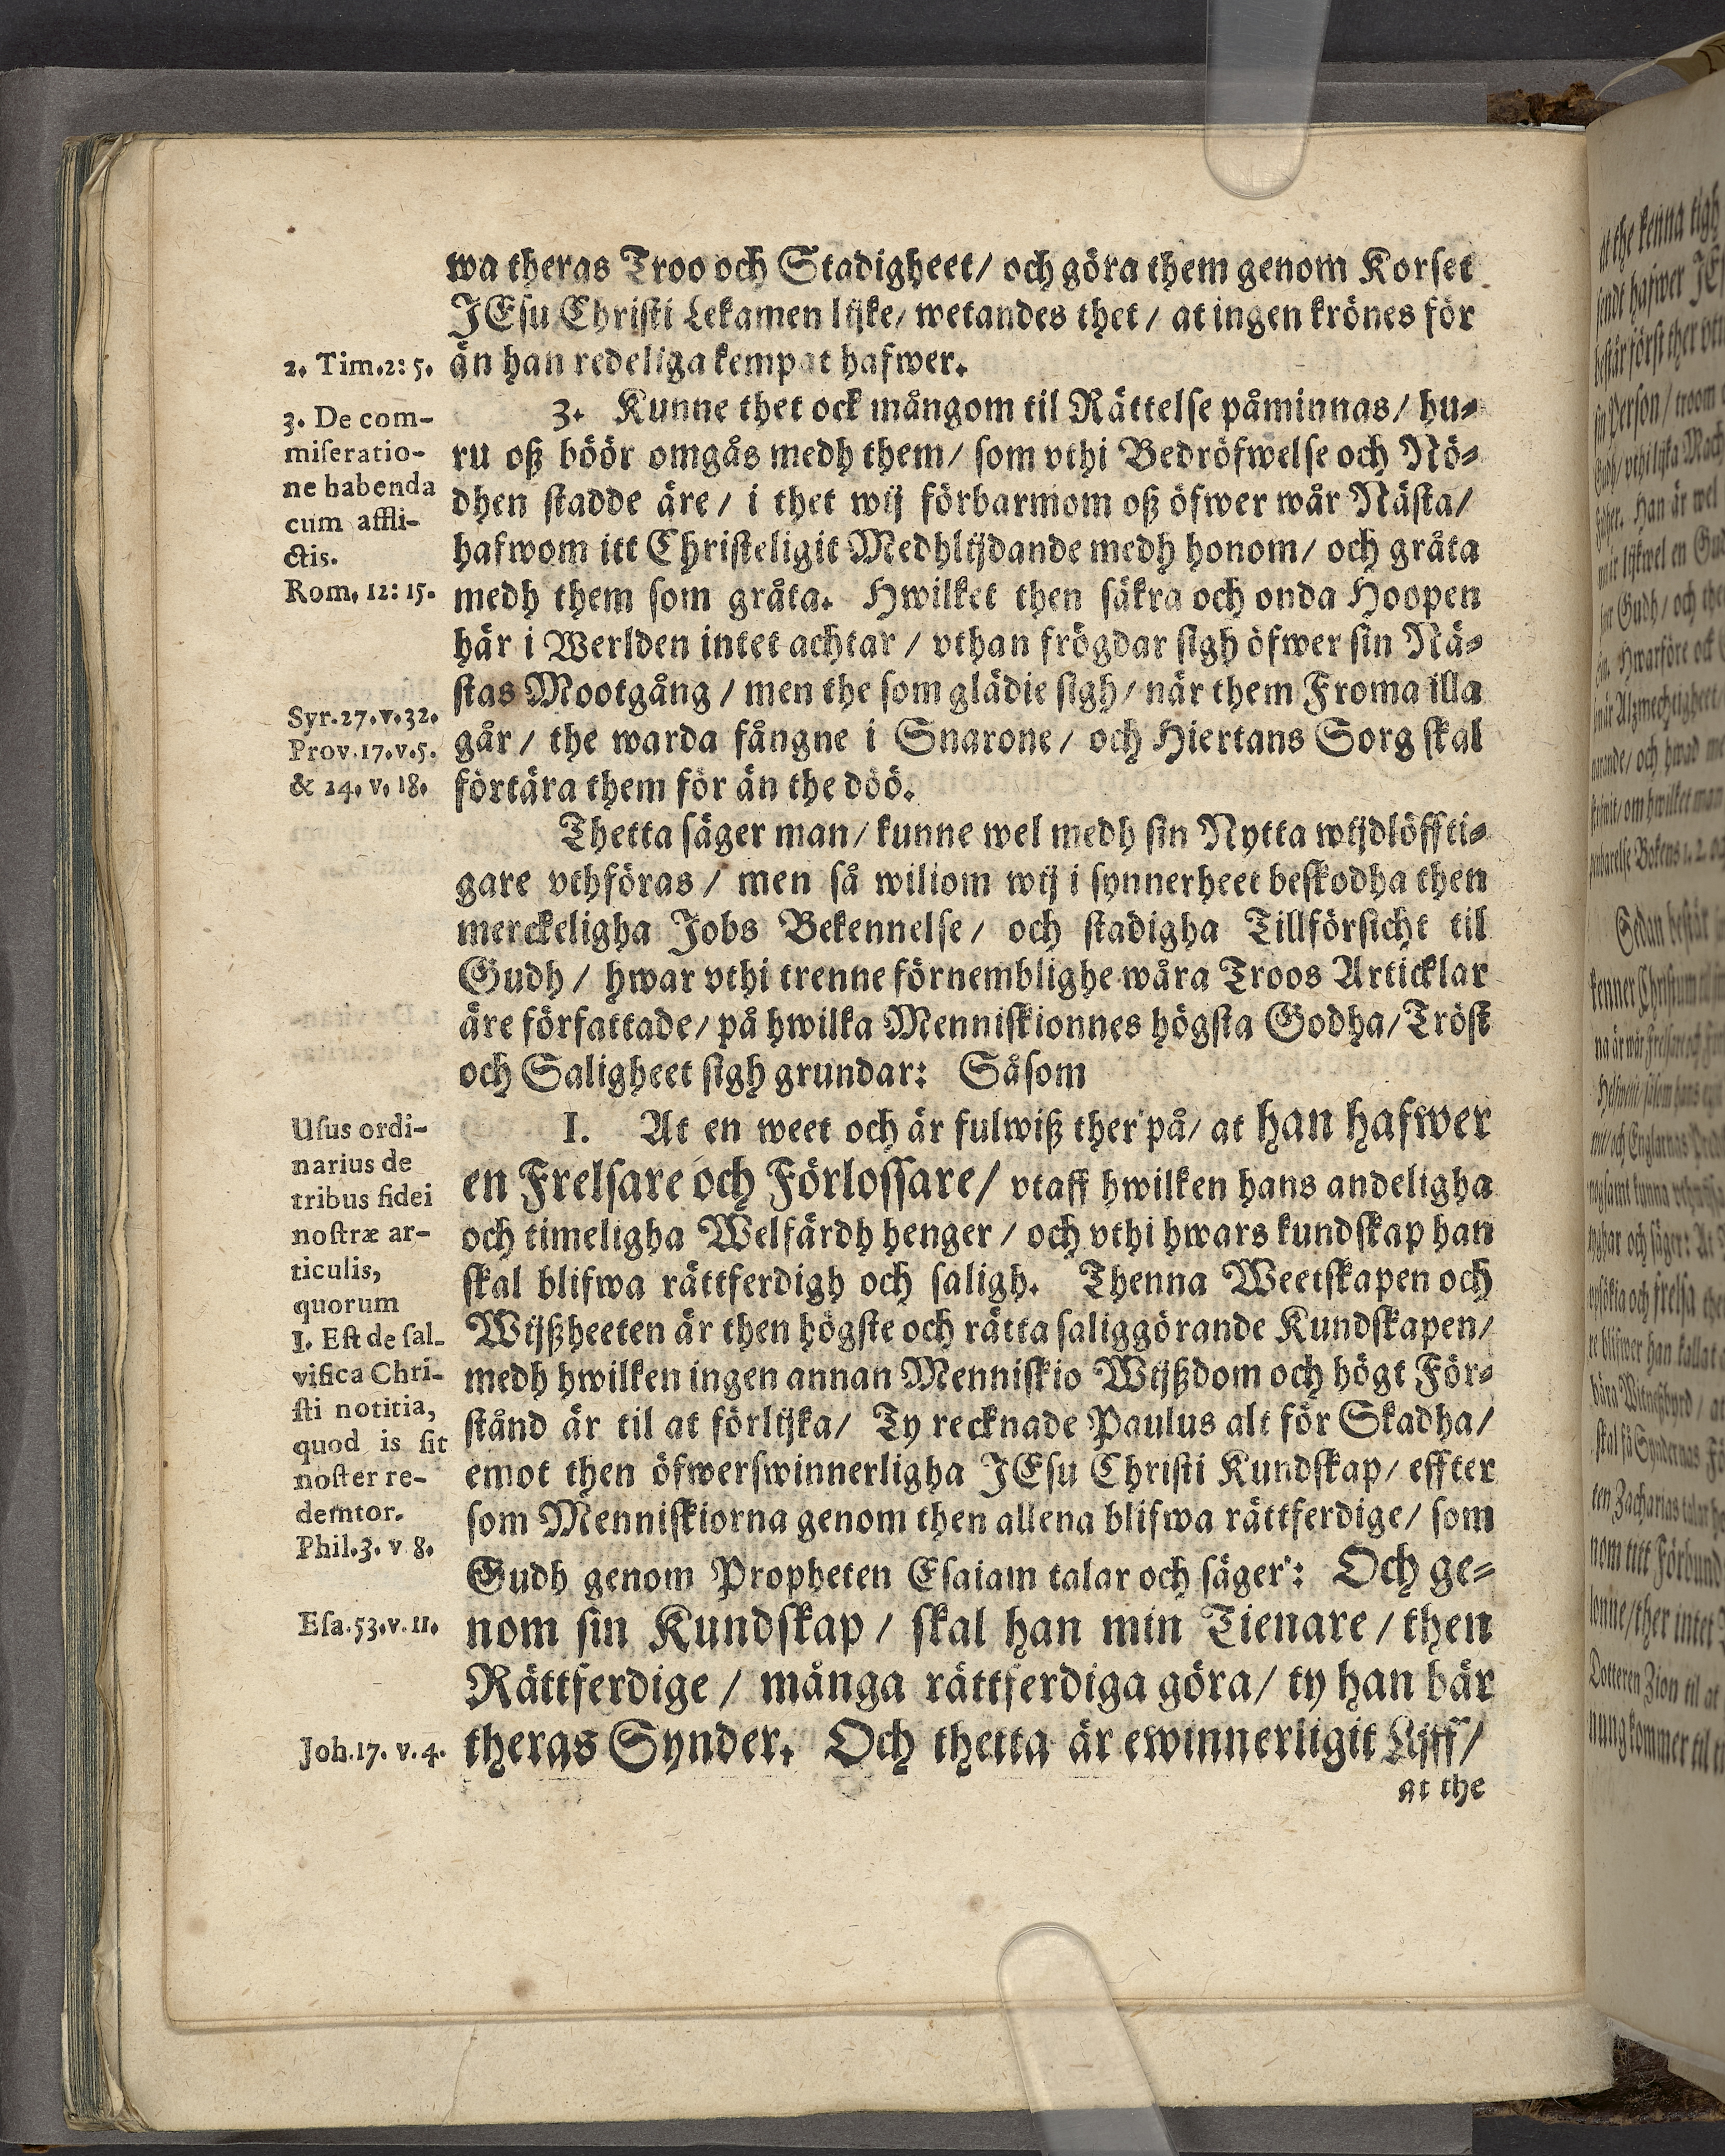 wa theras Troo och Stadigheet/ och göra them genom Korset
JEsu Christi Lekamen lijke/ wetandes thet/ at ingen krönes för
än han redeliga kempat hafwer.
2. Tim.2: 5.
3. Kunne thet ock mångom til Rättelse påminnas/ hu-
ru oß böör omgås medh them/ som vthi Bedröfwelse och Nö-
dhen stadde äre/ i thet wij förbarmom oß öfwer wår Nästa/
hafwom itt Christeligit Medhlijdande medh honom/ och gråta
medh them som gråta. Hwilket then säkra och onda Hoopen
här i Werlden intet achtar/ vthan frögdar sigh öfwer sin Nä-
stas Mootgång/ men the som glädie sigh/ när them Froma illa
går/ the warda fångne i Snarone/ och Hiertans Sorg skal
förtära them för än the döö.
3. De com-
miseratio-
ne habenda
cum affli-
ctis.
Rom. 12: 15.
Syr.27.v.32.
Prov.17.v.5.
& 24. v. 18.
Thetta säger man/ kunne wel medh sin Nytta wijdlöffti-
gare vthföras/ men så wiliom wij i synnerheet beskodha then
merckeligha Jobs Bekennelse/ och stadigha Tillförsicht til
Gudh/ hwar vthi trenne förnemblighe wåra Troos Articklar
äre författade/ på hwilka Menniskionnes högsta Godha/ Tröst
och Saligheet sigh grundar: Såsom
I. At en weet och är fulwiß ther på/ at han hafwer
en Frelsare och Förlossare/ vtaff hwilken hans andeligha
och timeligha Welfärdh henger/ och vthi hwars kundskap han
skal blifwa rättferdigh och saligh. Thenna Weetskapen och
Wijßheeten är then högste och rätta saliggörande Kundskapen/
medh hwilken ingen annan Menniskio Wijßdom och högt För-
stånd är til at förlijka/ Ty recknade Paulus alt för Skadha/
emot then öfwerswinnerligha JEsu Christi Kundskap/ effter
som Menniskiorna genom then allena blifwa rättferdige/ som
Gudh genom Propheten Esaiam talar och säger: Och ge-
nom sin Kundskap/ skal han min Tienare/ then
Rättferdige/ många rättferdiga göra/ ty han bär
theras Synder. Och thetta är ewinnerligit Lijff/
at the
Usus ordi-
narius de
tribus fidei
nostræ ar-
ticulis,
quorum
I. Est de sal-
vifica Chri-
sti notitia,
quod is sit
noster re-
demtor.
Phil.3. v 8.
Esa.53.v.11.
Joh.17. v.4.